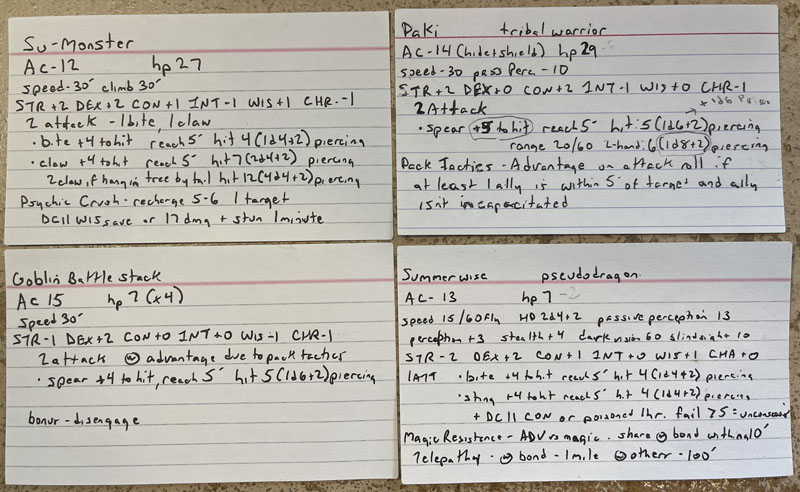 Su-Monster
AC-12 hp 27
speed-30' climb 30'
STR+2 DEX+2 CON+1 INT-1 WIS+1 CHR.-1
2 attack - 1 bite, 1 claw
• bite +4 to hit reach 5' hit 4(1d4+2) piercing
• claw +4 to ht reach 5' hit 7(2d4+2) piercing
2 claw, if hang in tree by tail hit 12(4d4+2) piercing
Psychic Crush - recharge 5-6 1 target
DC 11 WIS save or 17 dmg + stun 1 minute
Paki tribal warrior
AC-14 (hide+shield) hp 29
speed-30 pass Perc -10
STR+2 DEX+0 CON+2 INT-1 WIS+0 CHR-1
2 Attack
+ 1d6 Poison
• spear +5 to hit reach 5' hit: 5(1d6+2) piercing
range 20/60 2-hand: 6(1d8+2) piercing
Pack Tactics - Advantage on attack roll if
at least 1 ally is within 5' of target and ally
isnt incapacitated
Goblin Battle stack
AC 15 hp 7 (x4)
speed 30'
STR-1 DEX+2 CON+0 INT+0 WIS-1 CHR-1
2 attack w advantage due to pack tactics
• spear +4 to hit, reach 5' hit 5(1d6+2) piercing
bonus - disengage
Summerwise pseudodragon
AC-13 hp 7
speed 15/60 fly HD 2d4+2 passive perception 13
perception +3 stealth +4 darkvision 60 blindsight 10
STR-2 DEX+2 CON+1 INT+0 WIS+1 CHA+0
1 ATT • bite +4 to hit reach 5' hit 4(1d4+2) piercing
• sting +4 to hit reach 5' hit 4(1d4+2) piercing
+ DC 11 CON or poisoned 1hr. fail >5 = unconscious
Magic Resistance - ADV vs magic. share w bond within 10'
Telepathy - w bond - 1 mile w others - 100'